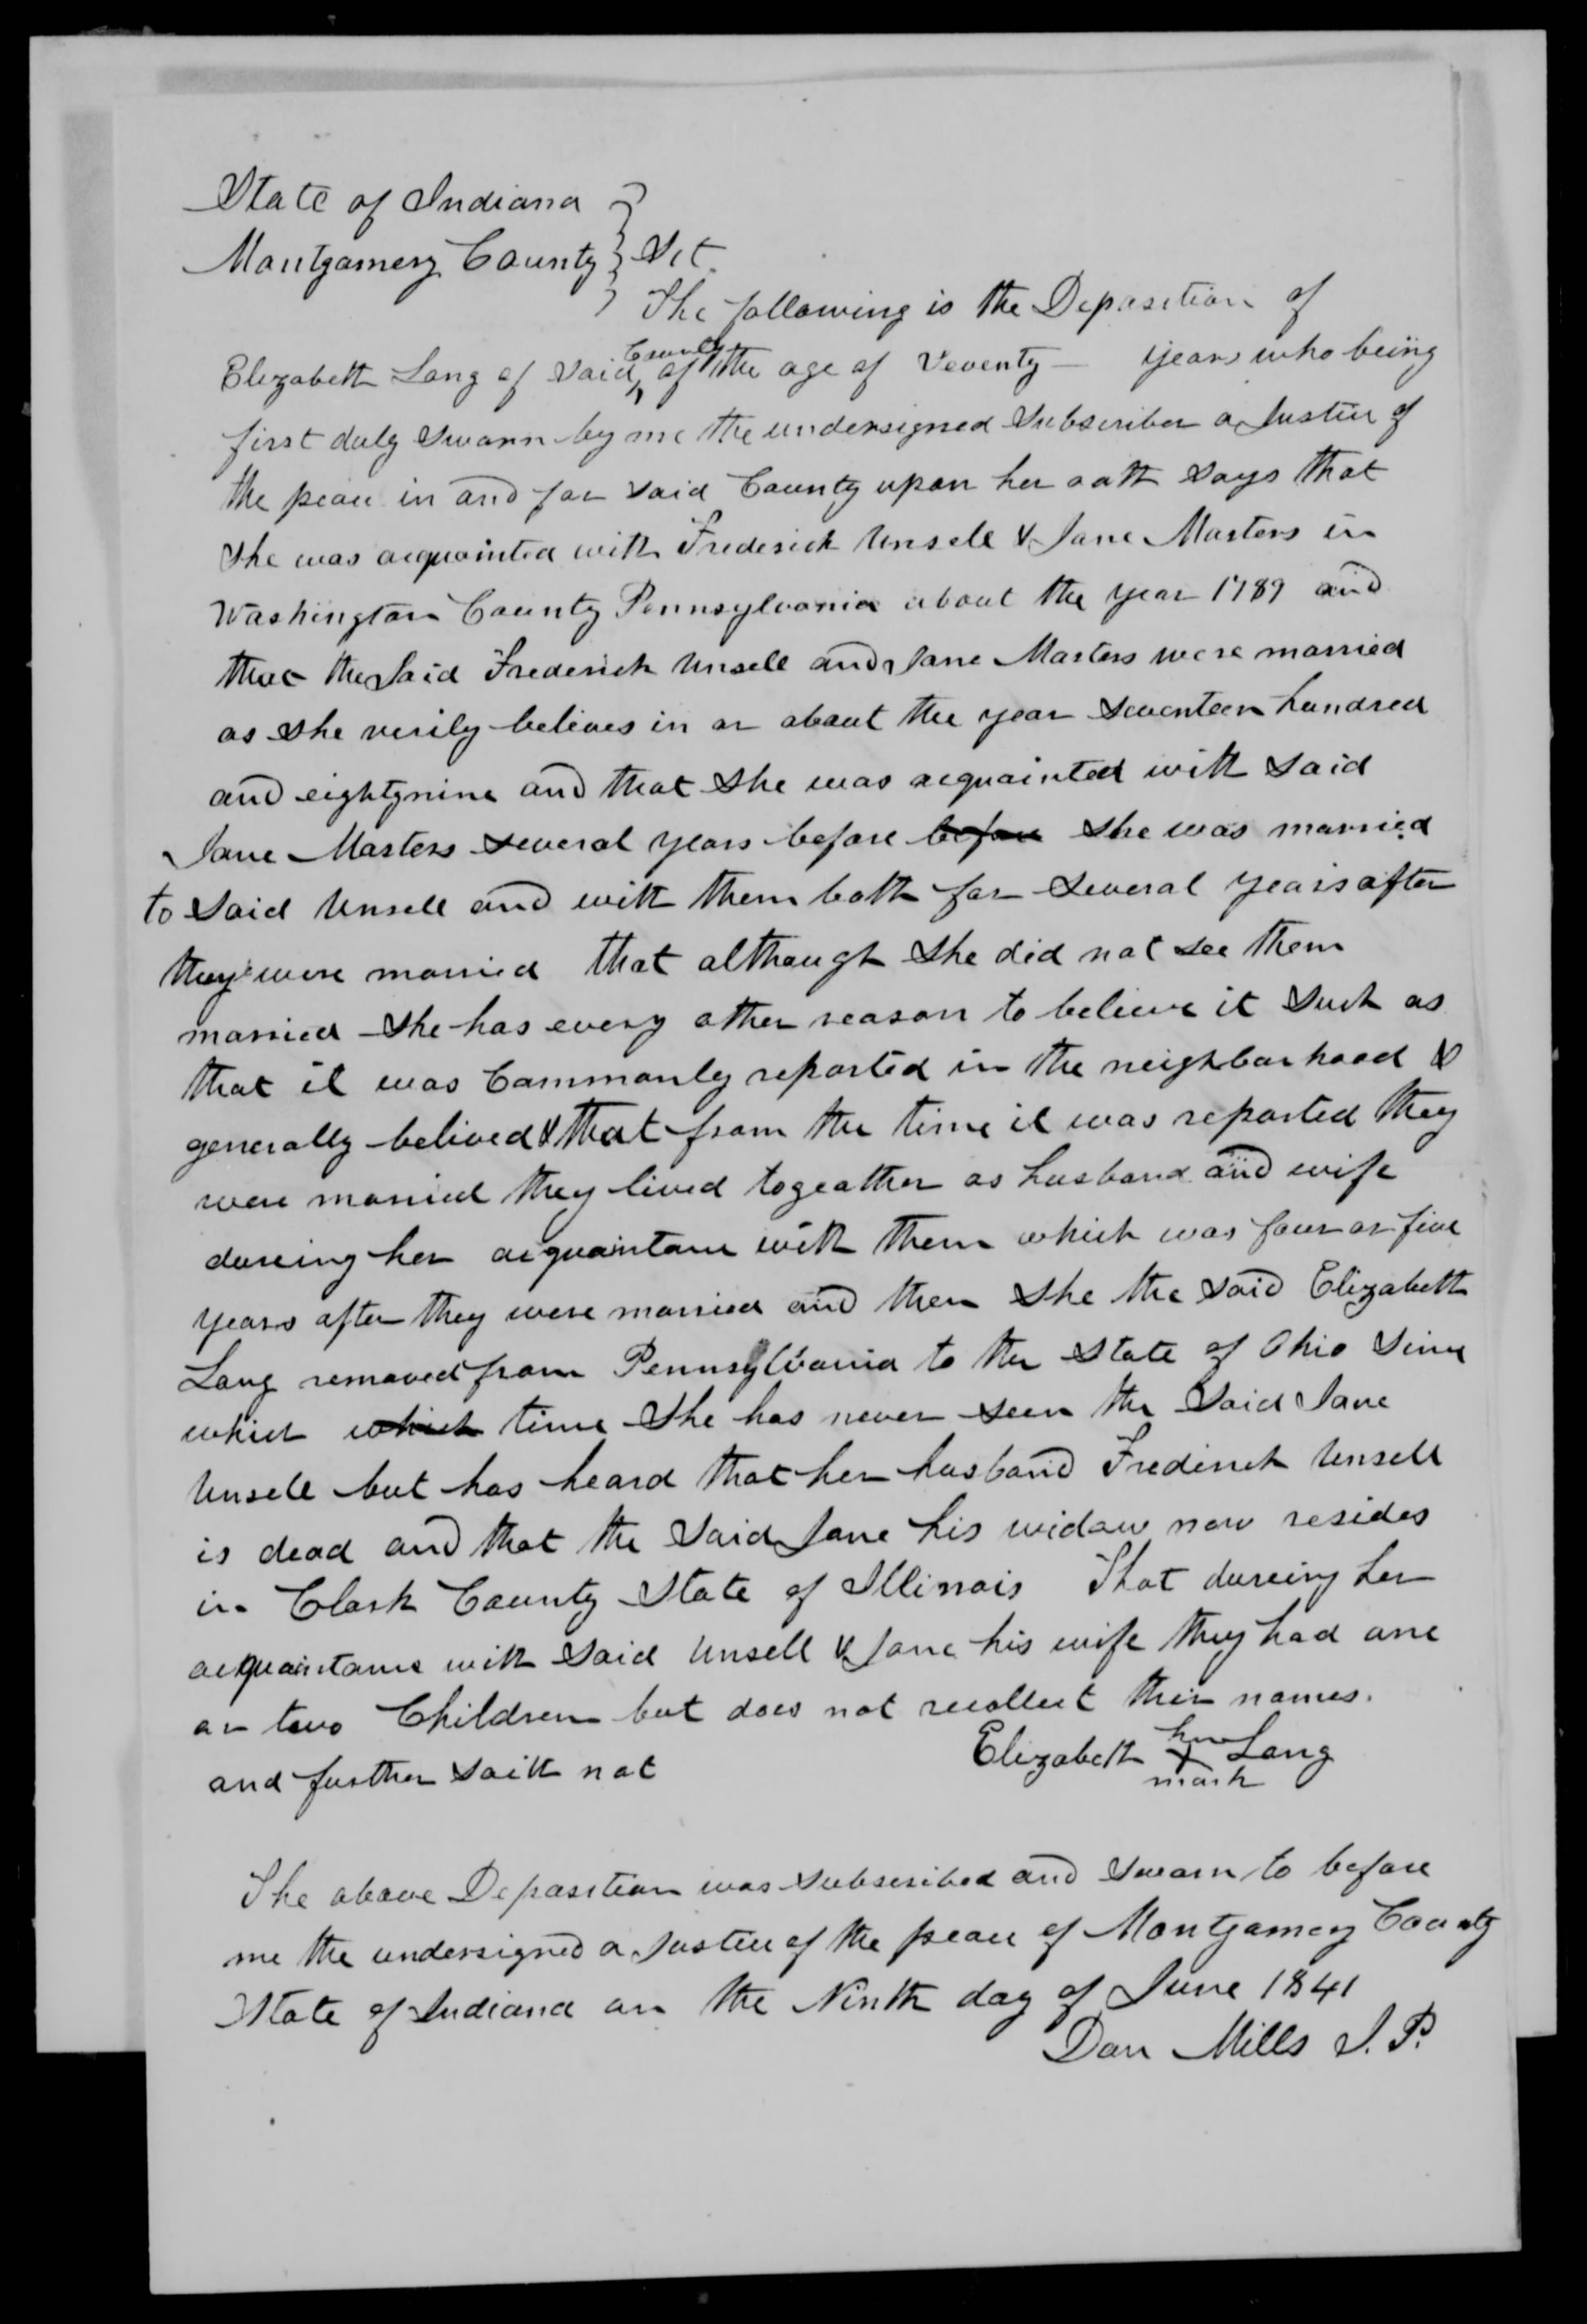 State of Indiana
Montgomery County } Sct.
The following is the Deposition of
Elizabeth Long of said County of the age of Seventy — years who being
first duly Sworn by me the undersigned Subscriber a Justice of
the peace in and for said County upon her oath Says that
She was acquainted with Frederick Unsell & Jane Masters in
Washington County Pennsylvania about the year 1789 and
that the Said Frederick Unsell and Jane Masters were married
as She verily believes in or about the year Seventeen hundred
and eightynine and that She was acquainted with Said
Jane Masters several years before before She was married
to Said Unsell and with them both for Several years after
they were married that although She did not see them
married She has every other reason to believe it Such as
that it was Commonly reported in the neighborhood &
generally belived & that from the time it was reported they
were married they lived togeather as husband and wife
dureing her acquaintance with them which was four or five
years after they were married and then She the Said Elizabeth
Long removed from Pennsylvania to the State of Ohio Since
which which time She has never seen the Said Jane
Unsell but has heard that her husband Frederick Unsell
is dead and that the Said Jane his widow now resides
in Clark County State of Illinois That dureing her
acquaintance with Said Unsell & Jane his wife they had one
or two Children but does not recollect their names.
and further Saith not
Elizabeth her X mark Long
The above Deposition was Subscribed and Sworn to before
me the undersigned a Justice of the peace of Montgomery County
State of Indiana on the Ninth day of June 1841
Dan Mills J. P.